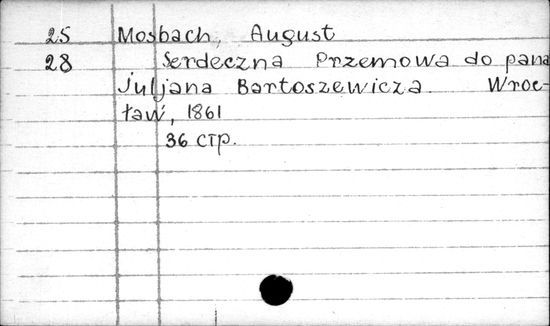 25 Mosbach, August
28 Serdeczna Przemowa do pana
Juljana Bartoszewicza. Wroc-
ław, 1861
36 стр.